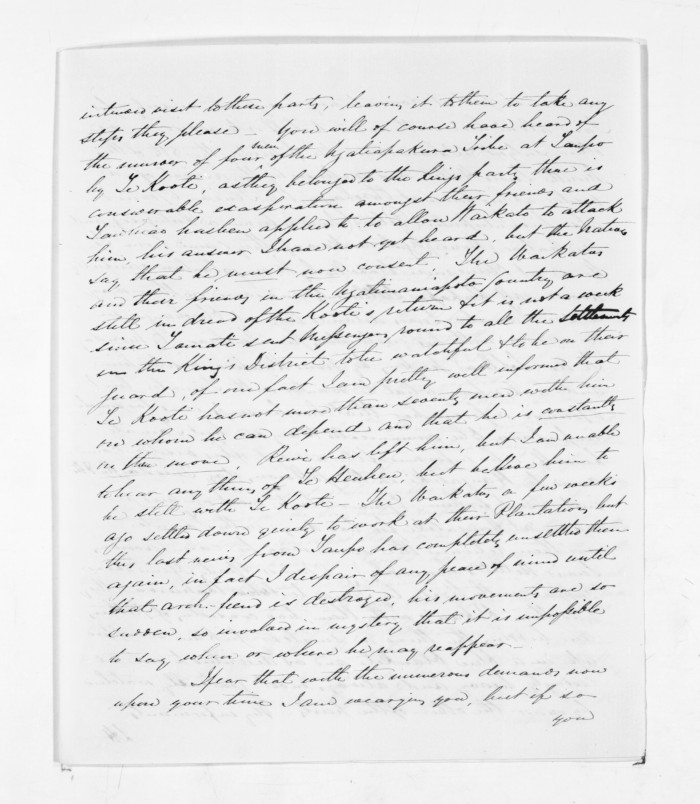 intward visit to these parts, leaving it to them to take any
steps they please — You will of course have heard of
the murder of four men of the Ngatiapakura Tribe at Taupo
by Te Kooti, as they belonged to the Kings party there is
considerable exasperation amongst their friends and
Tawhiao has been applied to to allow Waikato to attack
him, his answer I have not yet heard, but the Natives
say that he must now consent. The Waikatos
and their friends in the Ngatimaniapoto Country are
still in dread of Te Kooti's return & it is not a week
since Tamati sent Messengers round to all the Settlements
in the King's District to be watchful & to be on their
guard, of one fact I am pretty well informed that
Te Kooti has not more than seventy men with him
on whom he can depend and that he is constantly
on the move. Rewi has left him, but I am unable
to hear any thing of Te Heuheu, but believe him to
be still with Te Kooti — The Waikatos a few weeks
ago settled down quietly to work at their Plantations but
this last news from Taupo has completely unsettled them
again, in fact I despair of any peace of mind until
that arch-fiend is destroyed, his movements are so
sudden, so involved in mystery that it is impossible
to say when or where he may reappear —
I fear that with the numerous demands now
upon your time I am wearying you, but if so
you